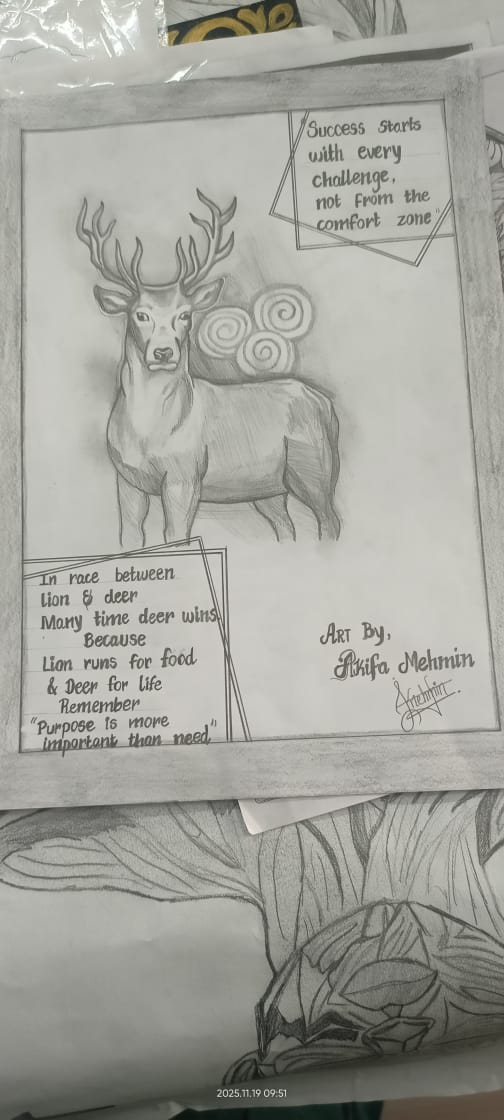 Success Starts
with every
challenge,
not From the
comfort zone"
In race between
lion & deer
Many time deer wins
Because
Lion runs for food
& Deer for life
Remember
"Purpose is more
important than need"
ART By,
Akifa Mehmin
2025.11.19 09:51